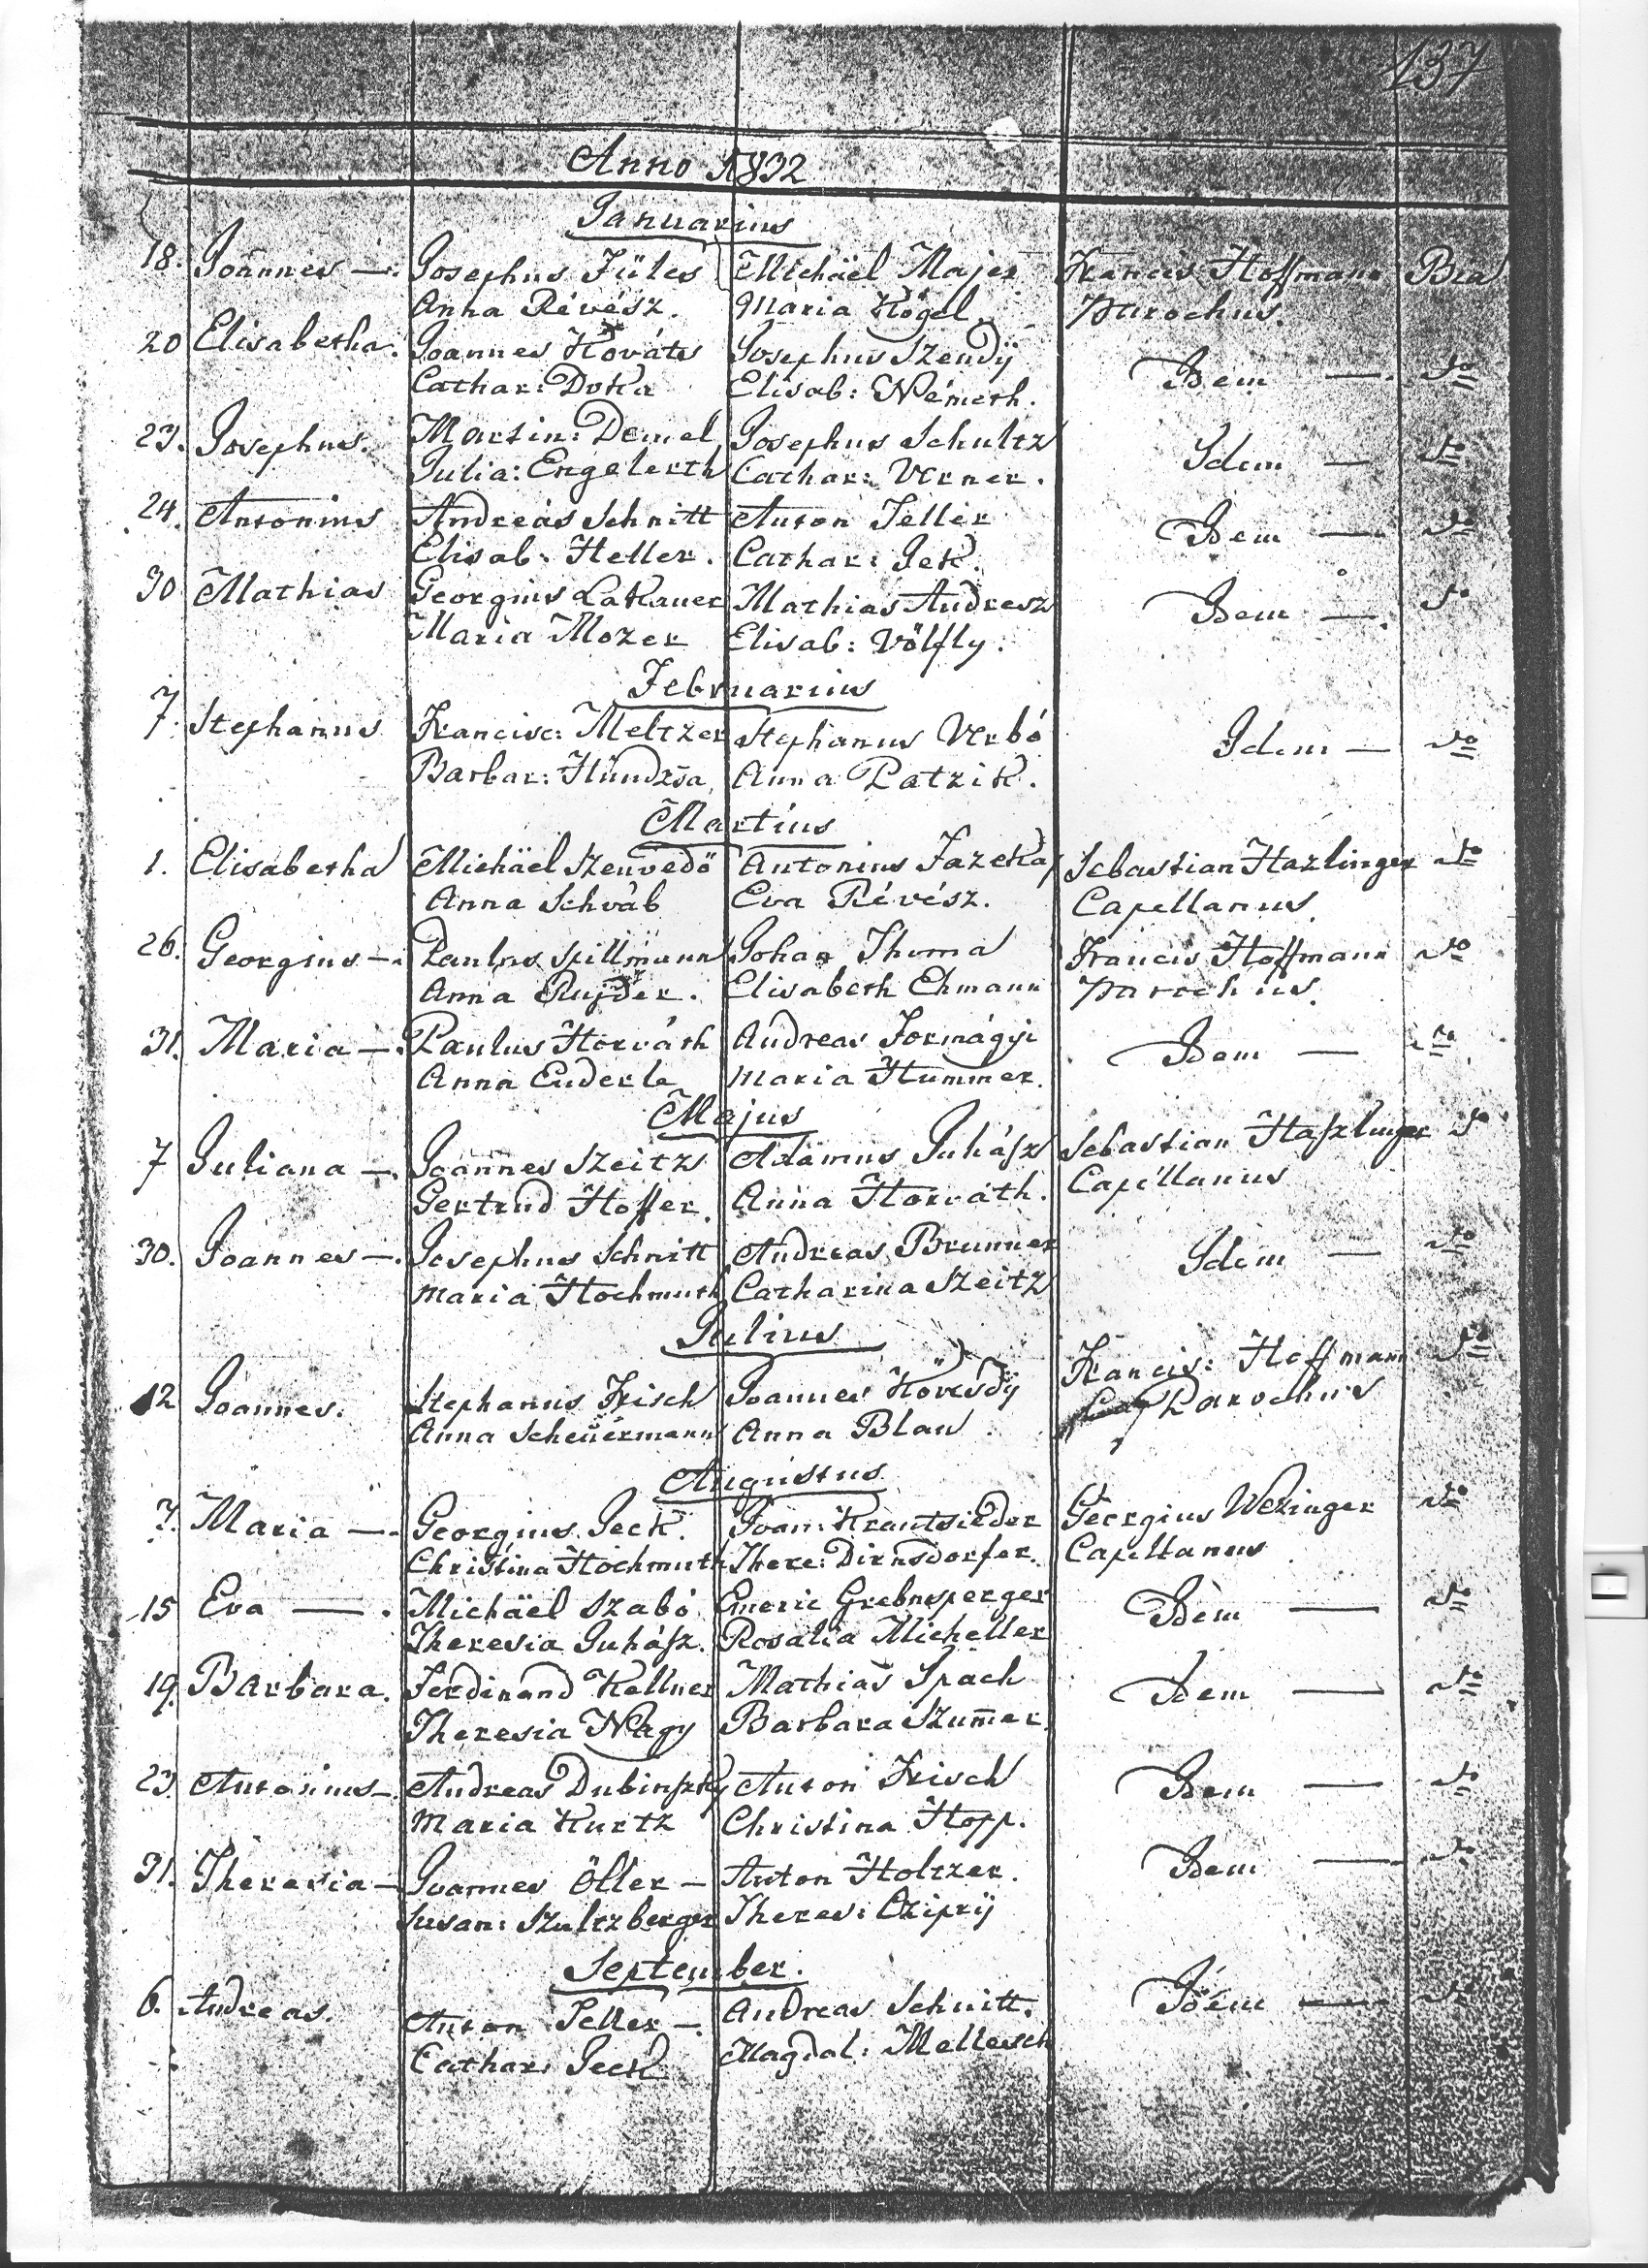 137
Anno 1832
Januarius
18. Joannes —. Josephus Füles Michäel Majer Francis Hoffmann Bia
Anna Révész. Maria Kögel. Parochus.
20 Elisabetha. Joannes Kováts Josephus Szendÿ
Cathar: Doka Elisab: Németh. Idem —. do
23. Josephus. Martin: Demel Josephus Schultz
Julia: Engelerth Cathar: Verner. Idem — do
24. Antonius Andreas Schnitt Anton Teller
Elisab. Heller. Cathar: Jek. Idem — do
30 Mathias Georgius Lakauer Mathias Andresz
Maria Mozer Elisab: Völfly. Idem —. do
Februarius
7. Stephanus Francisc: Meltzer Stephanus Verbó Idem — do
Barbar: Hundzsa Anna Patzik.
Martius
1. Elisabetha Michäel Szenvedö Antonius Fazekas Sebastian Hazlinger do
Anna Schváb Eva Révész. Capellanus.
26. Georgius —. Paulus Spillmann Johan Thoma Francis Hoffmann do
Anna Rujder. Elisabeth Ehmann Parochus.
31. Maria —. Paulus Horváth Andreas Formágyi Idem — do
Anna Enderle Maria Hummer.
Majus
7 Juliana —. Joannes Szeitz Adamus Juhász Sebastian Haszlinger do
Gertrud Hoffer. Anna Horváth. Capellanus
30. Joannes —. Josephus Schnitt Andreas Brunner Idem — do
Maria Hochmuth Catharina Szeitz
Julius
12 Joannes. Stephanus Frisch Joannes Kövesdÿ Francis: Hoffmann do
Anna Scheüermann Anna Blau. Parochus
Augustus
7. Maria —. Georgius Jeck. Joan: Krautsieder Georgius Wezinger do
Christina Hochmuth There: Dirnsdorfer. Capellanus
15 Eva —. Michäel Szabó Emeric Grebnsperger Idem — do
Theresia Juhász. Rosalia Micheller
19. Barbara. Ferdinand Kellner Mathias Spach Idem — do
Theresia Nagy Barbara Szum̄er.
23. Antonius —. Andreas Dubinszky Anton Frisch Idem — do
Maria Kurtz Christina Hopp.
31. Theresia — Joannes Öller — Anton Holtzer. Idem — do
Susan: Szultzberger Theres: Cziprÿ
September.
6. Andreas. Anton Teller —. Andreas Schnitt. Idem — do
Cathar: Jeck Magdal: Mellesch